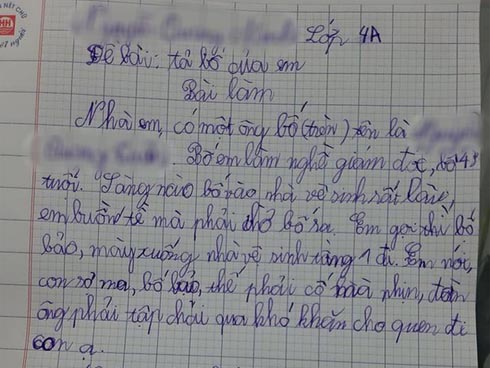 Lớp 4A
Đề bài: tả bố của em
Bài làm
Nhà em, có một ông bố (trộn) tên là
Bố em làm nghề giám đốc, bố 43
tuổi. Sáng nào bố vào nhà vệ sinh rất lâu,
em buồn tè mà phải chờ bố ra. Em gọi thì bố
bảo, mày xuống nhà vệ sinh tầng 1 đi. Em nói,
con sợ ma, bố bảo, thế phải cố mà nhịn, đàn
ông phải tập trải qua khó khăn cho quen đi
con ạ.